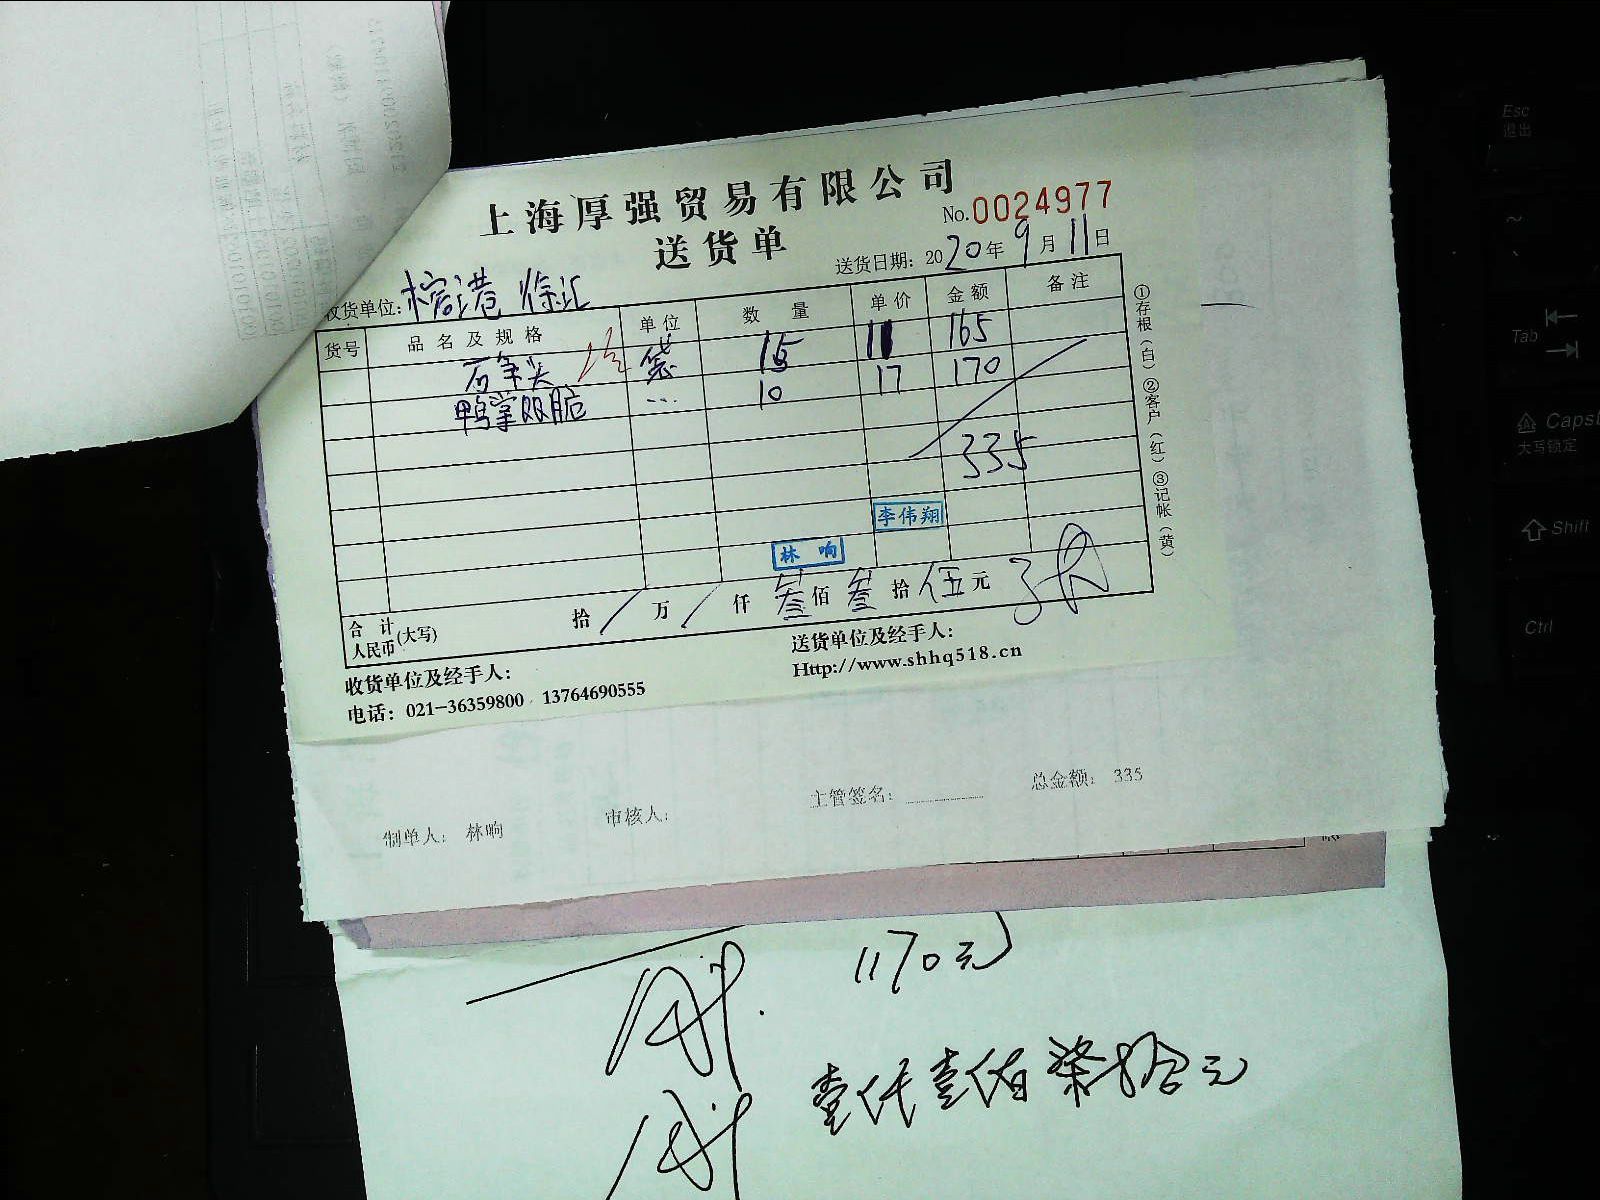 上海厚强贸易有限公司
送货单
No.0024977
送货日期：2020年9月11日
收货单位：榕港 徐汇
货号 品名及规格 单位 数量 单价 金额 备注
袋 15 11 165
鸭掌双脆 10 17 170
335
李伟翔
林响
合计人民币(大写) 拾/万/仟叁佰叁拾伍元
收货单位及经手人：
送货单位及经手人：
电话：021-36359800 13764690555
Http://www.shhq518.cn
①存根(白)②客户(红)③记帐(黄)
制单人：林响 审核人： 主管签名： 总金额：335
1170元
壹仟壹佰柒拾元
Esc
退出
Tab
Caps
大写锁定
Shift
Ctrl